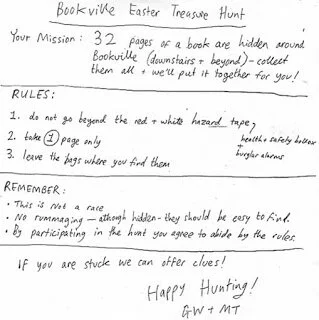 Bookville Easter Treasure Hunt
Your Mission: 32 pages of a book are hidden around
Bookville (downstairs + beyond) - collect
them all + we'll put it together for you!
RULES:
1. do not go beyond the red + white hazard tape,
health + safety bollox
+
burglar alarms
2. take 1 page only
3. leave the bags where you find them
REMEMBER:
• This is Not a race
• No rummaging - although hidden - they should be easy to find.
• By participating in the hunt you agree to abide by the rules.
IF you are stuck we can offer clues!
Happy Hunting!
GW + MT